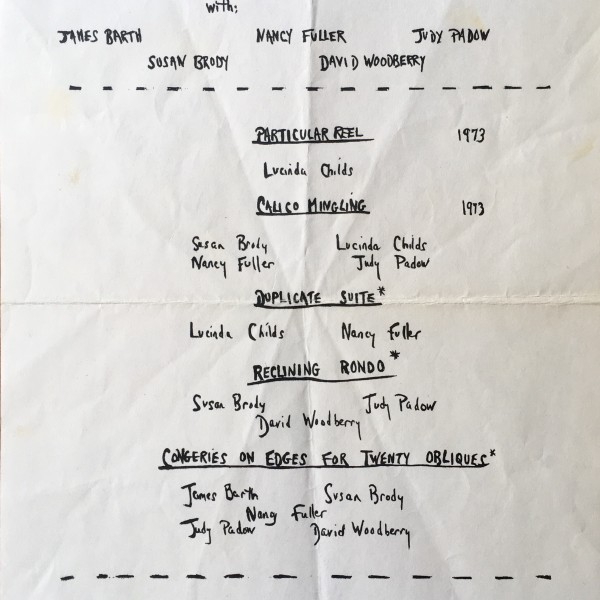 with:
JAMES BARTH NANCY FULLER JUDY PADOW
SUSAN BRODY DAVID WOODBERRY
PARTICULAR REEL 1973
Lucinda Childs
CALICO MINGLING 1973
Susan Brody Lucinda Childs
Nancy Fuller Judy Padow
DUPLICATE SUITE*
Lucinda Childs Nancy Fuller
RECLINING RONDO*
Susan Brody Judy Padow
David Woodberry
CONGERIES ON EDGES FOR TWENTY OBLIQUES*
James Barth Susan Brody
Nancy Fuller
Judy Padow David Woodberry